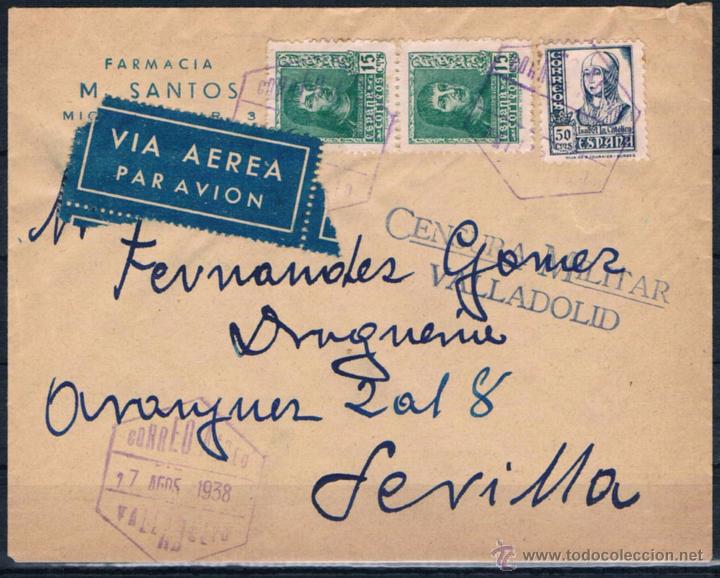 FARMACIA
M. SANTOS
VIA AEREA
PAR AVION
15
ESPAÑA
CORREOS
15
ESPAÑA
CORREOS
CORREOS
50
CTS
Isabel la Católica
ESPAÑA
CENSURA MILITAR
VALLADOLID
Fernandez Gomez
Drogueria
Aranguez 2 al 8
Sevilla
CORREO AEREO
17 AGOS 1938
VALLADOLID
todocoleccion
www.todocoleccion.net